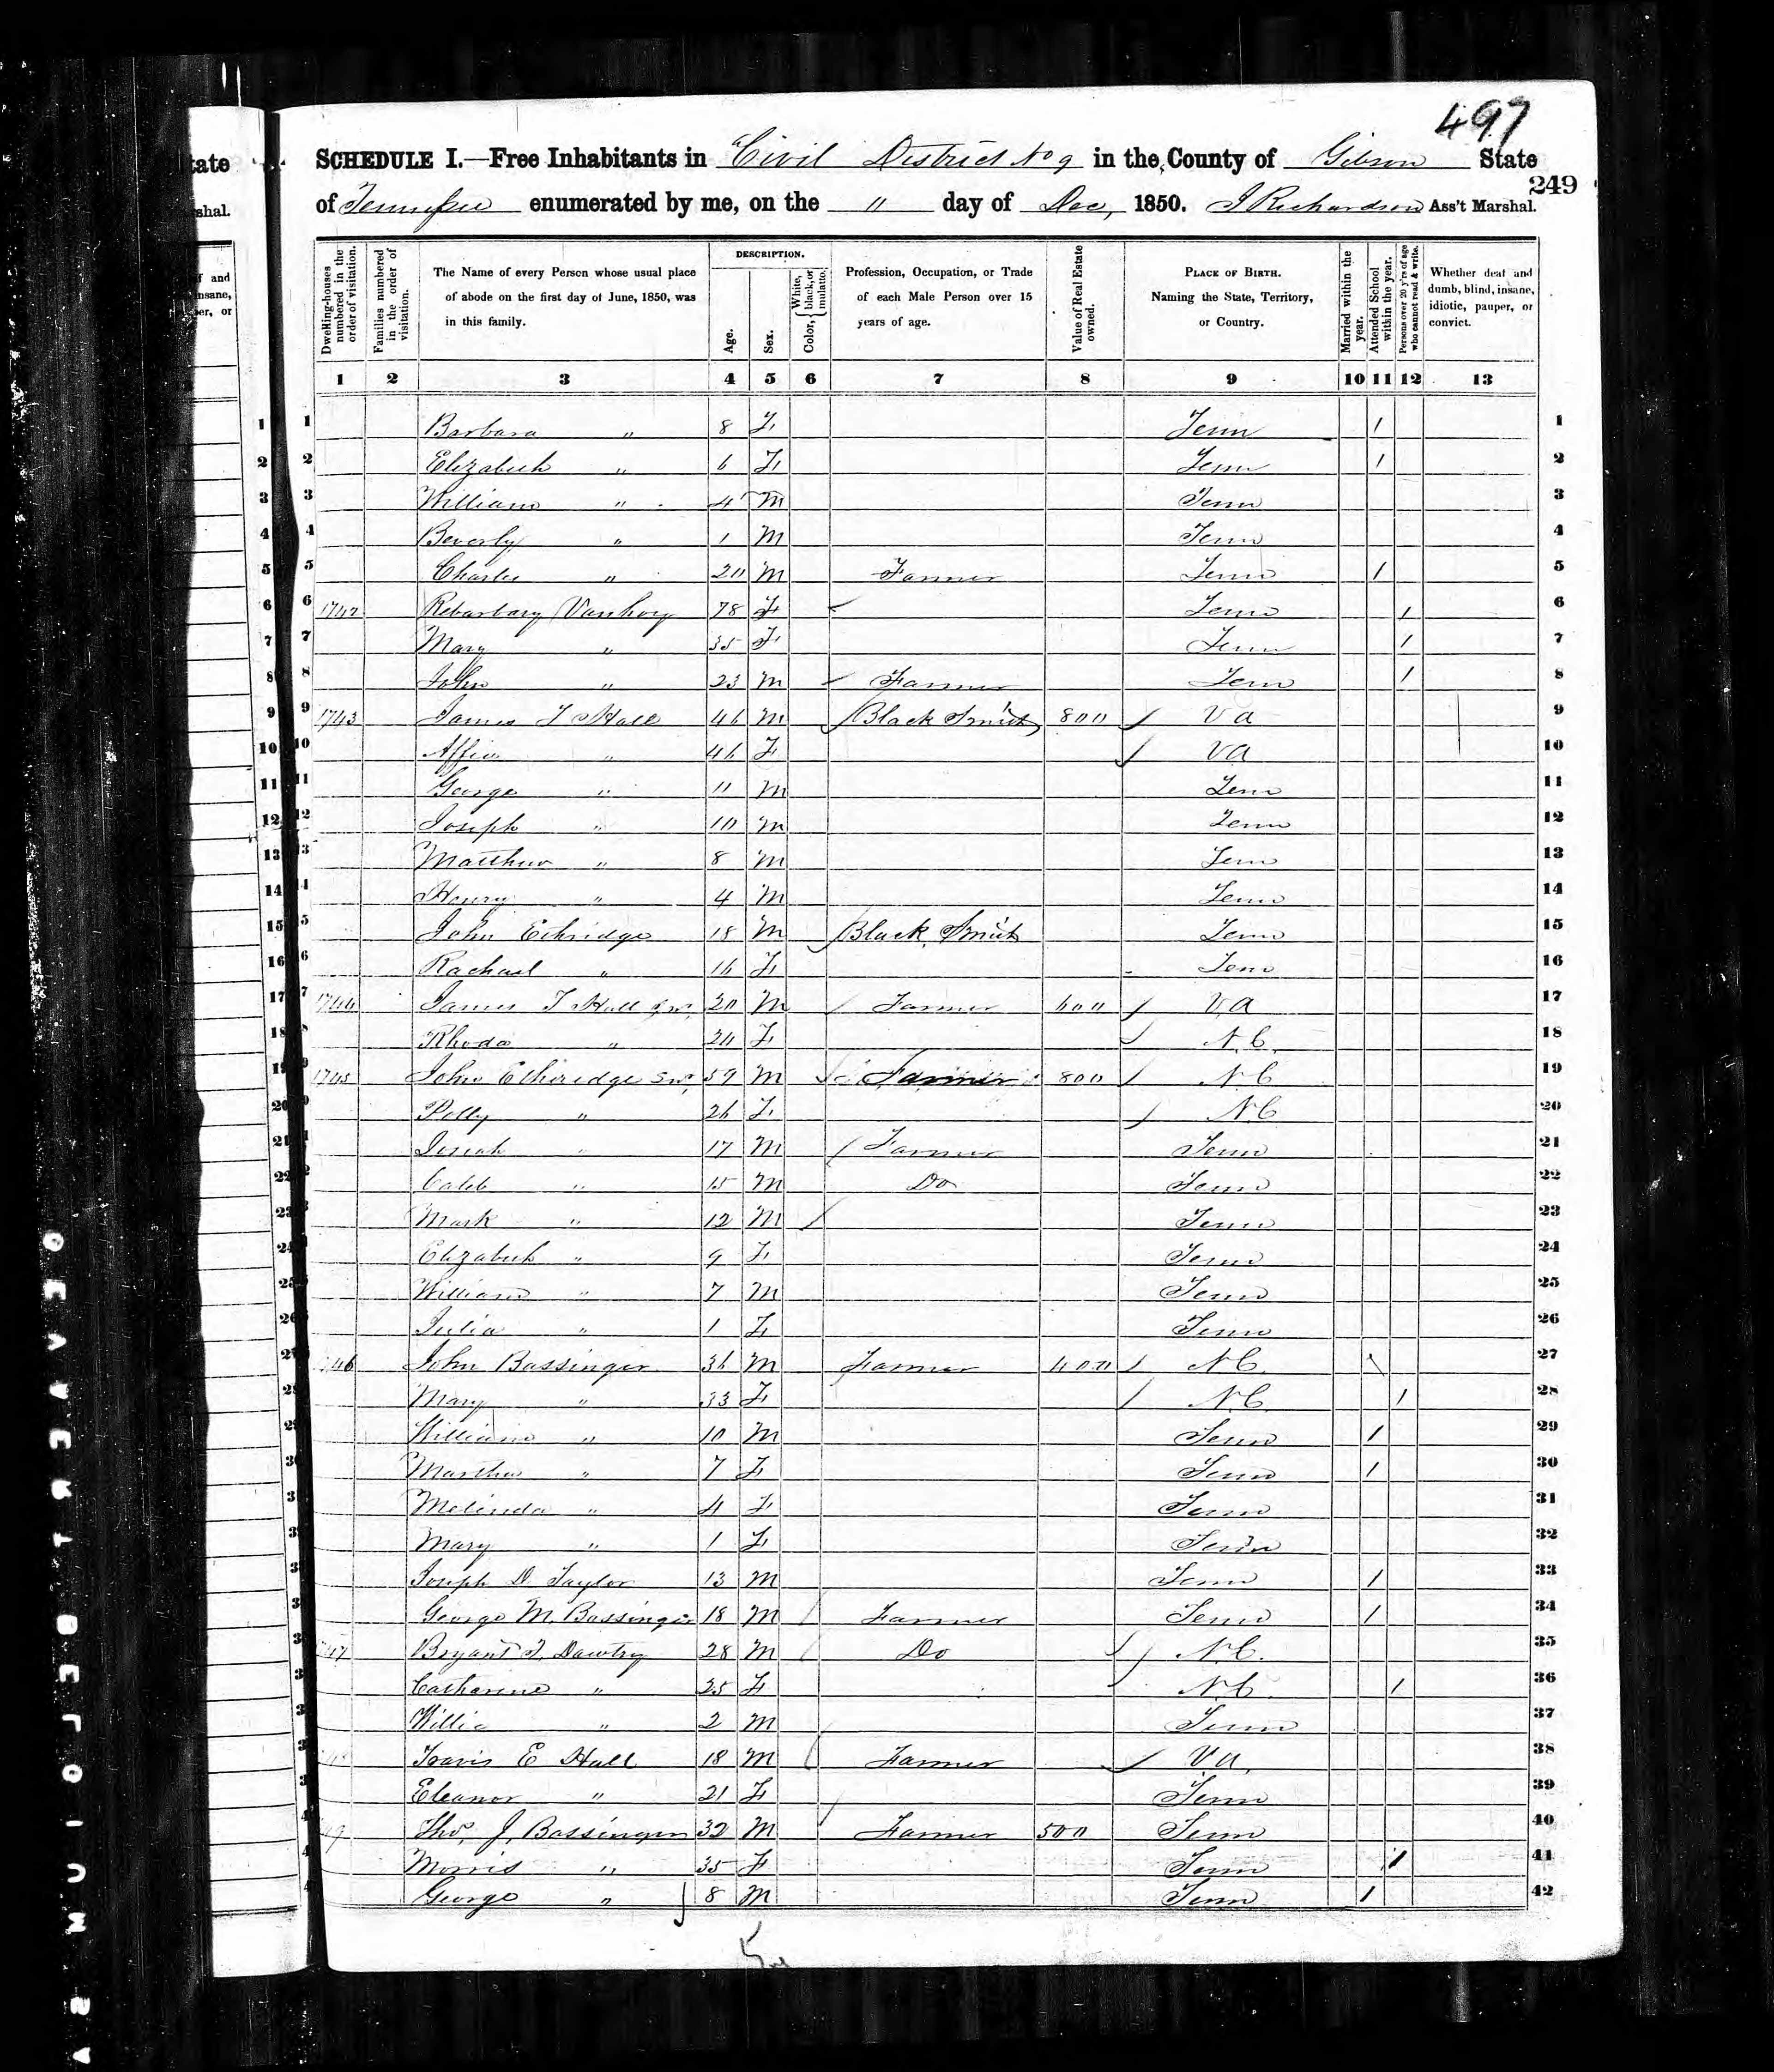 497
SCHEDULE I.—Free Inhabitants in Civil District No 9 in the County of Gibson State
249
of Tennessee enumerated by me, on the " day of Dec, 1850. J Richardson Ass't Marshal.
Dwelling-houses numbered in the order of visitation.
Families numbered in the order of visitation.
The Name of every Person whose usual place of abode on the first day of June, 1850, was in this family.
DESCRIPTION.
Age.
Sex.
Color, { White, black, or mulatto.
Profession, Occupation, or Trade of each Male Person over 15 years of age.
Value of Real Estate owned.
PLACE OF BIRTH. Naming the State, Territory, or Country.
Married within the year.
Attended School within the year.
Persons over 20 y'rs of age who cannot read & write.
Whether deaf and dumb, blind, insane, idiotic, pauper, or convict.
1 2 3 4 5 6 7 8 9 10 11 12 13
1 Barbara " 8 F Tenn / 1
2 Elizabeth " 6 F Tenn / 2
3 William " 4 M Tenn 3
4 Beverly " 1 M Tenn 4
5 Charles " 20 M Farmer Tenn / 5
6 1742 Vanhoy 78 F Tenn / 6
7 Mary " 35 F Tenn / 7
8 John " 23 M Farmer Tenn / 8
9 1743 James T Hall 46 M Black Smith 800 Va 9
10 " 46 F Va 10
11 George " 11 M Tenn 11
12 Joseph " 10 M Tenn 12
13 Matthew " 8 M Tenn 13
14 Henry " 4 M Tenn 14
15 John Ethridge 18 M Black Smith Tenn 15
16 Rachael " 16 F Tenn 16
17 1744 James T Hall Jnr. 20 M Farmer 600 Va 17
18 Rhoda " 20 F N.C. 18
19 1745 John Etheridge Snr. 59 M Farmer 800 N C 19
20 Polly " 26 F N C 20
21 17 M Farmer Tenn 21
22 Caleb " 15 M Do Tenn 22
23 Mark " 12 M Tenn 23
24 Elizabeth " 9 F Tenn 24
25 William " 7 M Tenn 25
26 Julia " 1 F Tenn 26
27 46 John Bassinger 36 M Farmer 400 N C. \ 27
28 Mary " 33 F N.C. / 28
29 William " 10 M Tenn / 29
30 Martha " 7 F Tenn / 30
31 Melinda " 4 F Tenn 31
32 Mary " 1 F Tenn 32
33 Joseph D Taylor 13 M Tenn / 33
34 George M. Bassinger 18 M Farmer Tenn / 34
35 47 Bryant T. Dawtry 28 M Do N.C. 35
36 Catharine " 25 F N.C. / 36
37 Willie " 2 M Tenn 37
38 Travis E Hall 18 M Farmer Va. 38
39 Eleanor " 21 F Tenn 39
40 Thos. J. Bassinger 32 M Farmer 500 Tenn 40
41 Morris " 35 F Tenn / 41
42 George " 8 M Tenn / 42